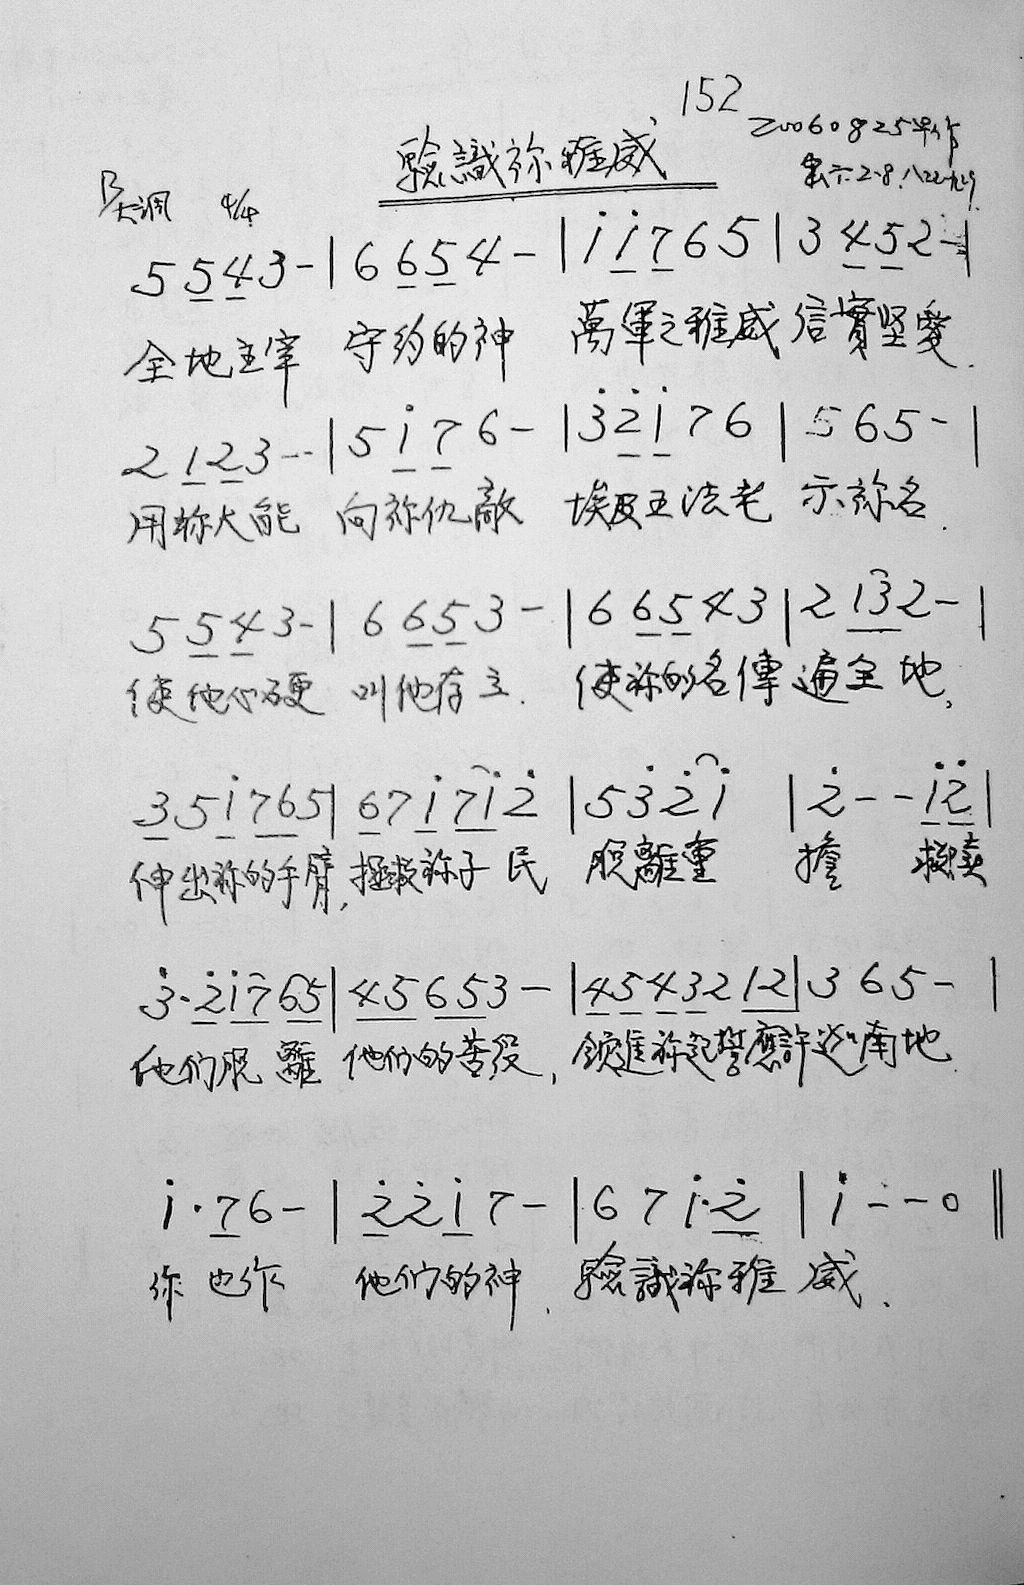 152
20060825早作
驗識祢雅威
B大調 4/4
5 5 4 3 - | 6 6 5 4 - | i̇ i̇ 7 6 5 | 3 4 5 2 - |
全地主宰 守約的神 萬軍之雅威 信實堅愛.
2 1 2 3 -- | 5 i̇ 7 6 - | 3̇ 2̇ i̇ 7 6 | 5 6 5 - |
用祢大能 向祢仇敵 埃及王法老 示祢名.
5 5 4 3 - | 6 6 5 3 - | 6 6 5 4 3 | 2 1 3 2 - |
使他心硬 叫他存立. 使祢的名傳遍全地,
3 5 i̇ 7 6 5 | 6 7 i̇ 7 i̇ 2̇ | 5 3̇ 2̇ i̇ | 2̇ - - i̇ 2̇ |
伸出祢的手臂,拯救祢子民 脫離重擔 救贖
3̇ · 2̇ i̇ 7 6 5 | 4 5 6 5 3 - | 4 5 4 3 2 1 2 | 3 6 5 - |
他们脫離 他们的苦役, 領進祢起誓應許迦南地.
i̇ · 7 6 - | 2̇ 2̇ i̇ 7 - | 6 7 i̇ · 2̇ | i̇ - - 0 ||
祢也作 他们的神. 驗識祢雅威.